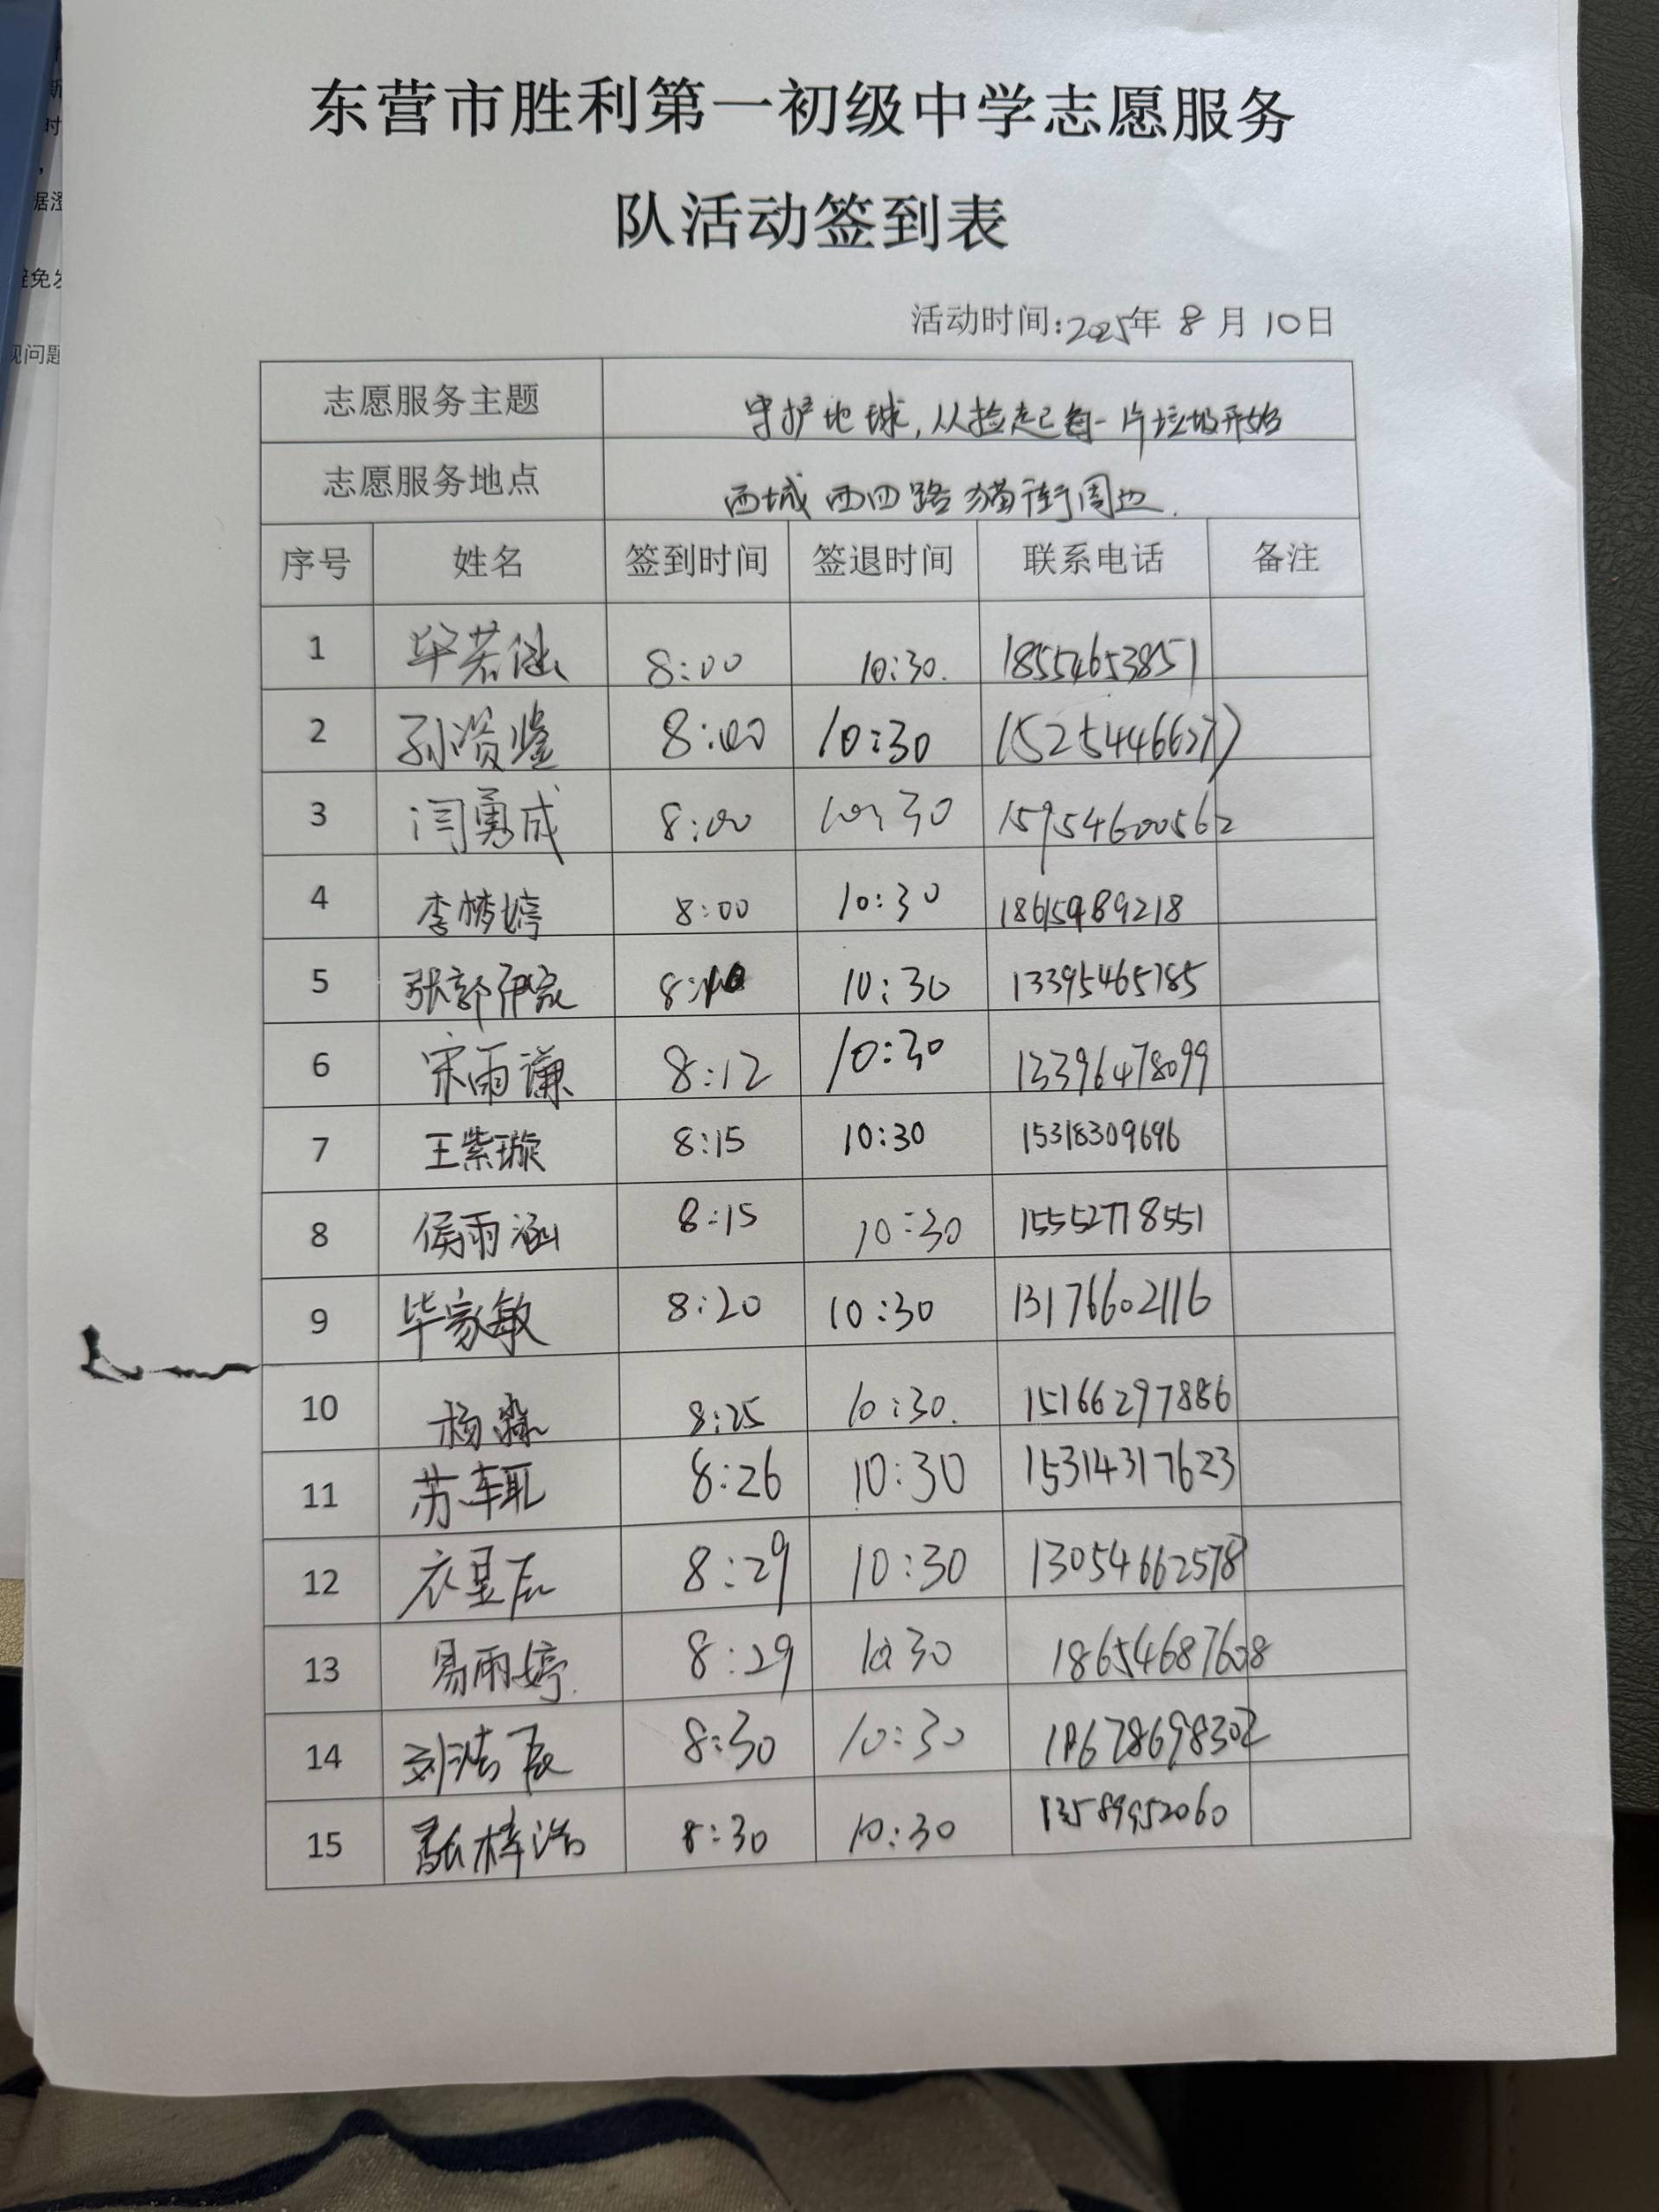 东营市胜利第一初级中学志愿服务
队活动签到表
活动时间:2025年 8 月 10日
志愿服务主题 守护地球,从捡起每一片垃圾开始
志愿服务地点 西城西四路猫街周边.
序号 姓名 签到时间 签退时间 联系电话 备注
1 毕若涵 8:00 10:30. 18554653851
2 8:00 10:30 15254466277
3 闫勇成 8:00 10:30 15954600562
4 李梦婷 8:00 10:30 18615989218
5 张郭伊宸 8:10 10:30 13395465785
6 宋雨谦 8:12 10:30 13396478099
7 王紫璇 8:15 10:30 15318309696
8 侯雨涵 8:15 10:30 15552778551
9 毕家敏 8:20 10:30 13176602116
10 杨淼 8:25 10:30. 15166297886
11 8:26 10:30 15314317623
12 衣星辰 8:29 10:30 13054662578
13 易雨婷. 8:29 10:30 18654687608
14 刘浩辰 8:30 10:30 18678698302
15 张梓浩 8:30 10:30 13589952060
新
时
,
据澄
免发
现问题